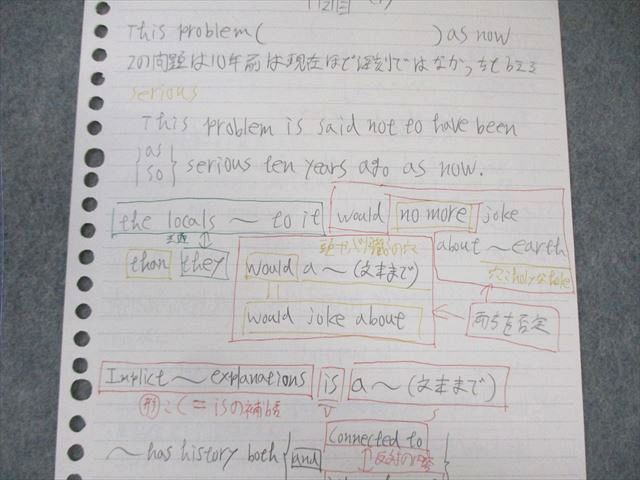 This problem (            ) as now
この問題は10年前は現在ほど深刻ではなかった
serious
This problem is said not to have been
as
so
serious ten years ago as now.
the locals ～ to it would no more joke
主語
about ～ earth
than they
would a～(文末まで)
would joke about
両方を否定
Implict ～ explanations is a～(文末まで)
形 = isの補語
～has history both and
Connected to
反対の内容